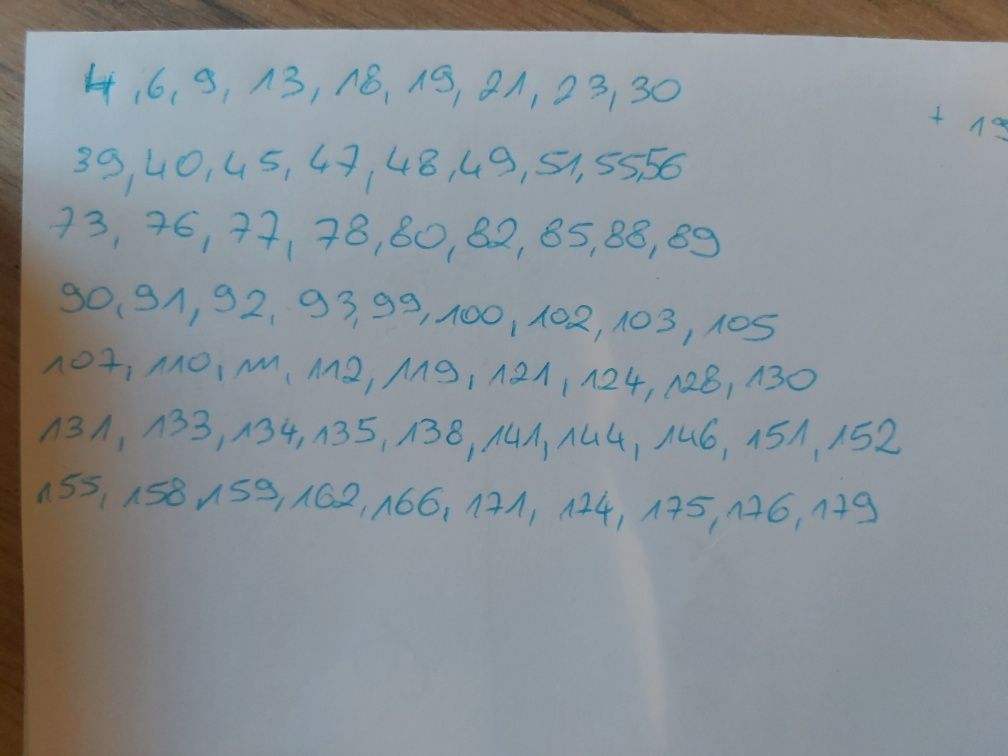 4, 6, 9, 13, 18, 19, 21, 23, 30
39, 40, 45, 47, 48, 49, 51, 55, 56
73, 76, 77, 78, 80, 82, 85, 88, 89
90, 91, 92, 93, 99, 100, 102, 103, 105
107, 110, 111, 112, 119, 121, 124, 128, 130
131, 133, 134, 135, 138, 141, 144, 146, 151, 152
155, 158, 159, 162, 166, 171, 174, 175, 176, 179